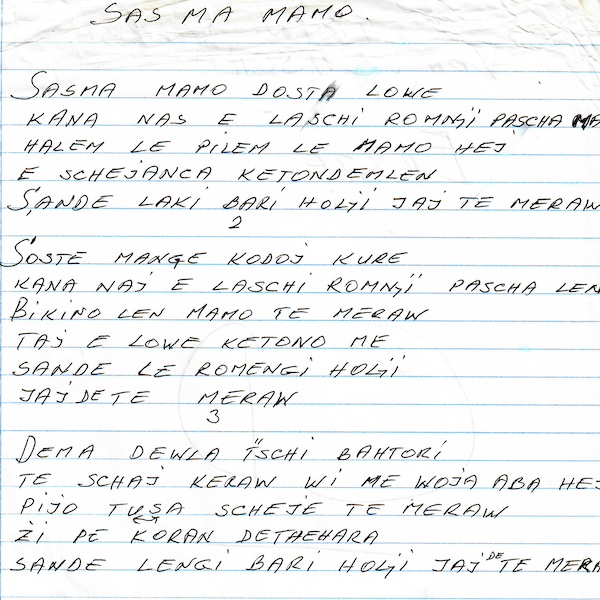 SAS MA MAMO.
SASMA MAMO DOSTA LOWE
KANA NAS E LASCHI ROMNJI PASCHA MA
HALEM LE PILEM LE MAMO HEJ
E SCHEJANCA KETONDEMLEN
SANDE LAKI BARI HOLJI JAJ TE MERAW
2
SOSTE MANGE KODOJ KURE
KANA NAJ E LASCHI ROMNJI PASCHA LEN
BIKINO LEN MAMO TE MERAW
TAJ E LOWE KETONO ME
SANDE LE ROMENGI HOLJI
JAJ DE TE MERAW
3
DEMA DEWLA ISCHI BAHTORI
TE SCHAJ KERAW WI ME WOJA ABA HEJ
PIJO TUSA SCHEJE TE MERAW
ŽI PE KORAN DETHEHARA
SANDE LENGI BARI HOLJI JAJ DE TE MERA